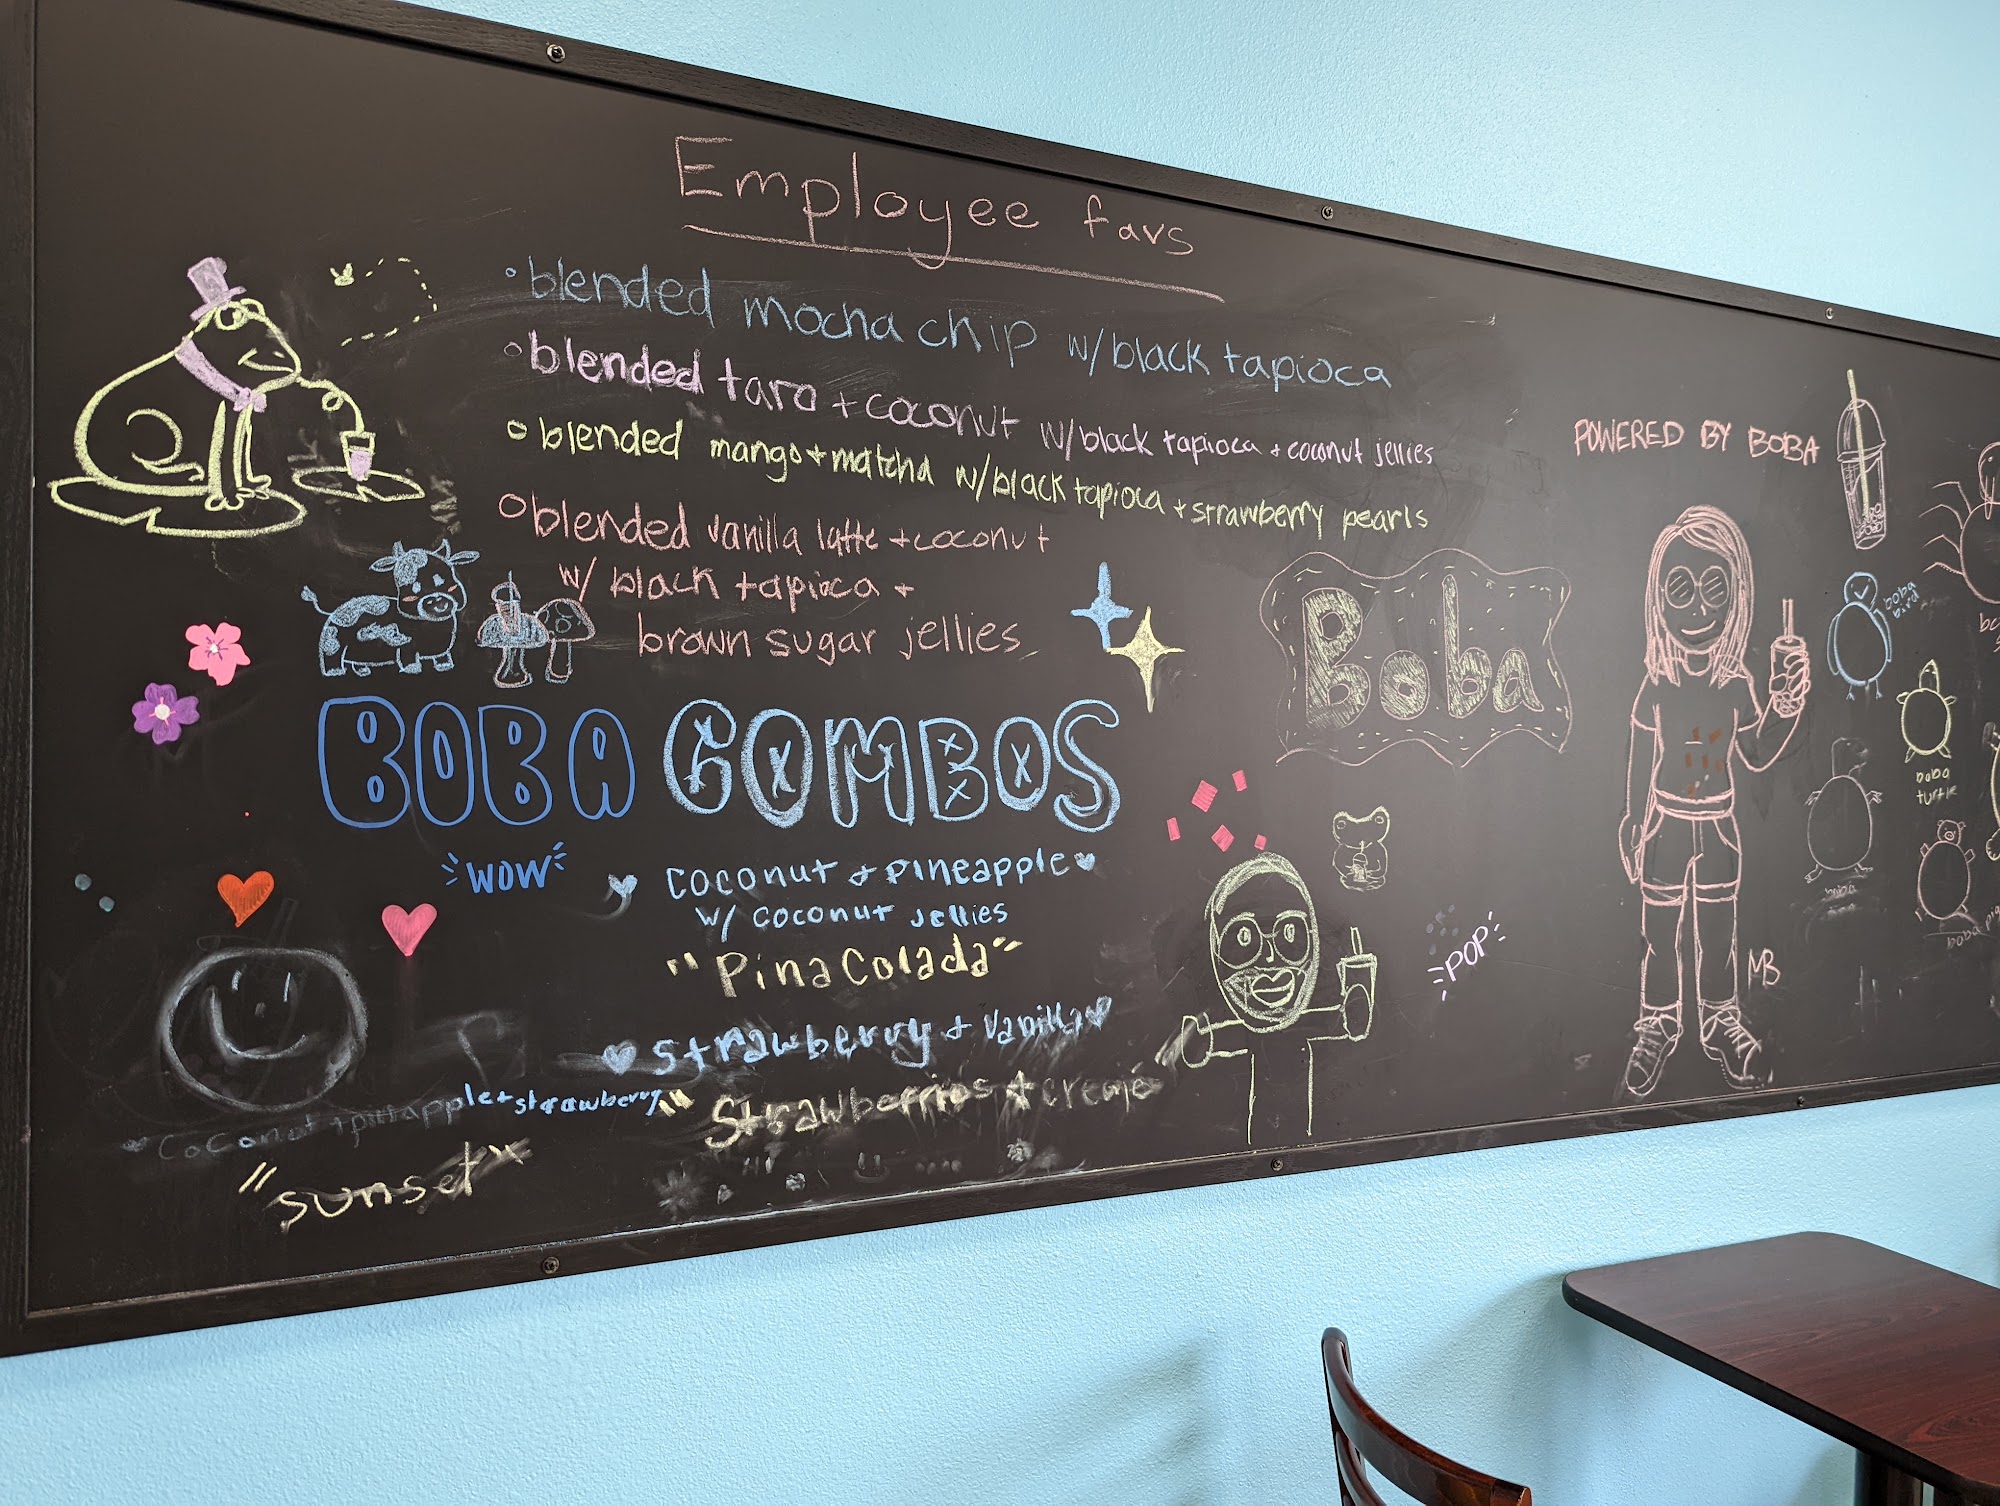 Employee favs
• blended mocha chip w/black tapioca
• blended taro + coconut w/black tapioca + coconut jellies
• blended mango + matcha w/black tapioca + strawberry pearls
• blended vanilla latte + coconut
w/ black tapioca +
brown sugar jellies
BOBA COMBOS
WOW
coconut + pineapple
w/ coconut jellies
"Pina Colada"
strawberry + vanilla
"Strawberries +
coconot + pinapple + strawberry
"sunset"
Boba
POP
POWERED BY BOBA
MB
boba
bird
boba
turtle
boba
boba